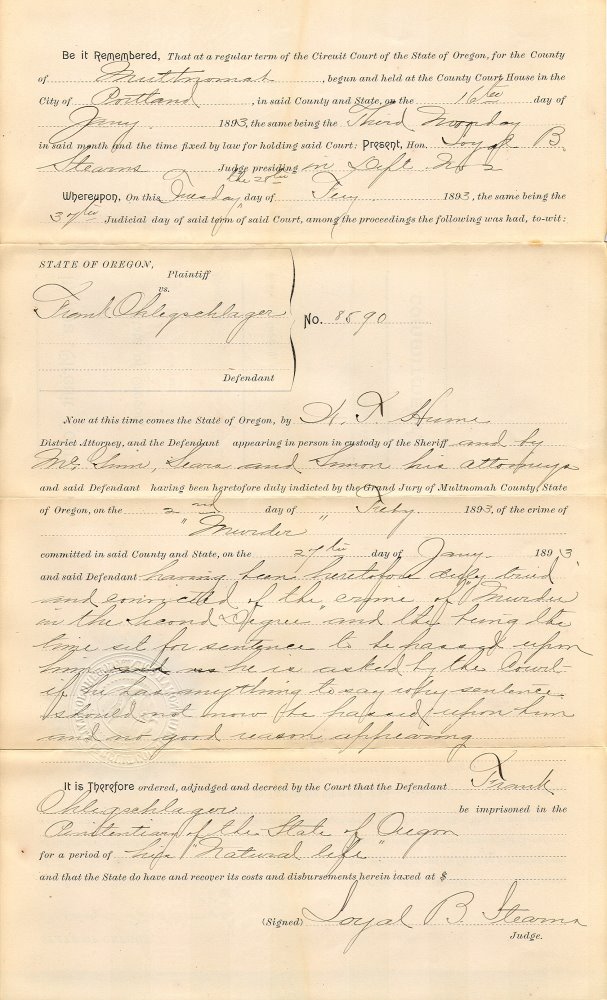 Be it Remembered, That at a regular term of the Circuit Court of the State of Oregon, for the County
of Multnomah, begun and held at the County Court House in the
City of Portland, in said County and State, on the 16th day of
Jany. 1893, the same being the Third Monday
in said month and the time fixed by law for holding said Court: Present, Hon. Loyal B.
Stearns Judge presiding in Dept. No 2
the 28th
Whereupon, On this Tuesday day of Feby 1893, the same being the
37th Judicial day of said term of said Court, among the proceedings the following was had, to-wit:
STATE OF OREGON,
Plaintiff
vs.
Frank Ohlegschlager
No. 8590
Defendant
Now at this time comes the State of Oregon, by W. T. Hume
District Attorney, and the Defendant appearing in person in custody of the Sheriff and by
Mc Ginn, Sears and Simon his attorneys
and said Defendant having been heretofore duly indicted by the Grand Jury of Multnomah County, State
of Oregon, on the 2nd day of Feby 1893, of the crime of
"Murder"
committed in said County and State, on the 27th day of Jany. 1893
and said Defendant having been heretofore duly tried
and convicted of the crime of "Murder
in the Second Degree" and this being the
time set for sentence to be passed upon
him and as he is asked by the Court
if he has anything to say why sentence
should not now be passed upon him
and no good reason appearing
It is Therefore ordered, adjudged and decreed by the Court that the Defendant Frank
Ohlegschlager be imprisoned in the
Penitentiary of the State of Oregon
for a period of his "Natural life"
and that the State do have and recover its costs and disbursements herein taxed at $
(Signed) Loyal B. Stearns
Judge.